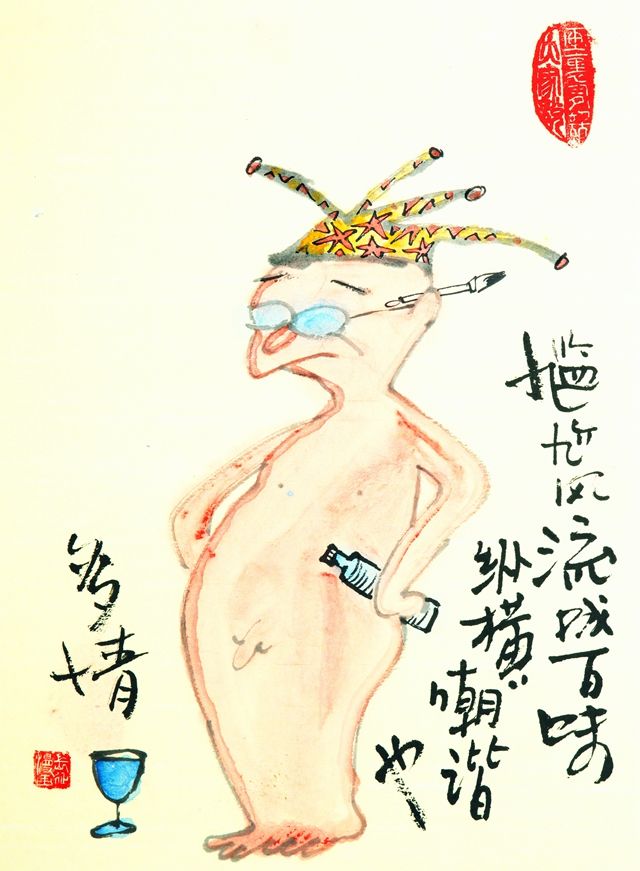 尴尬风流成百味
纵横嘲谐
也
多情